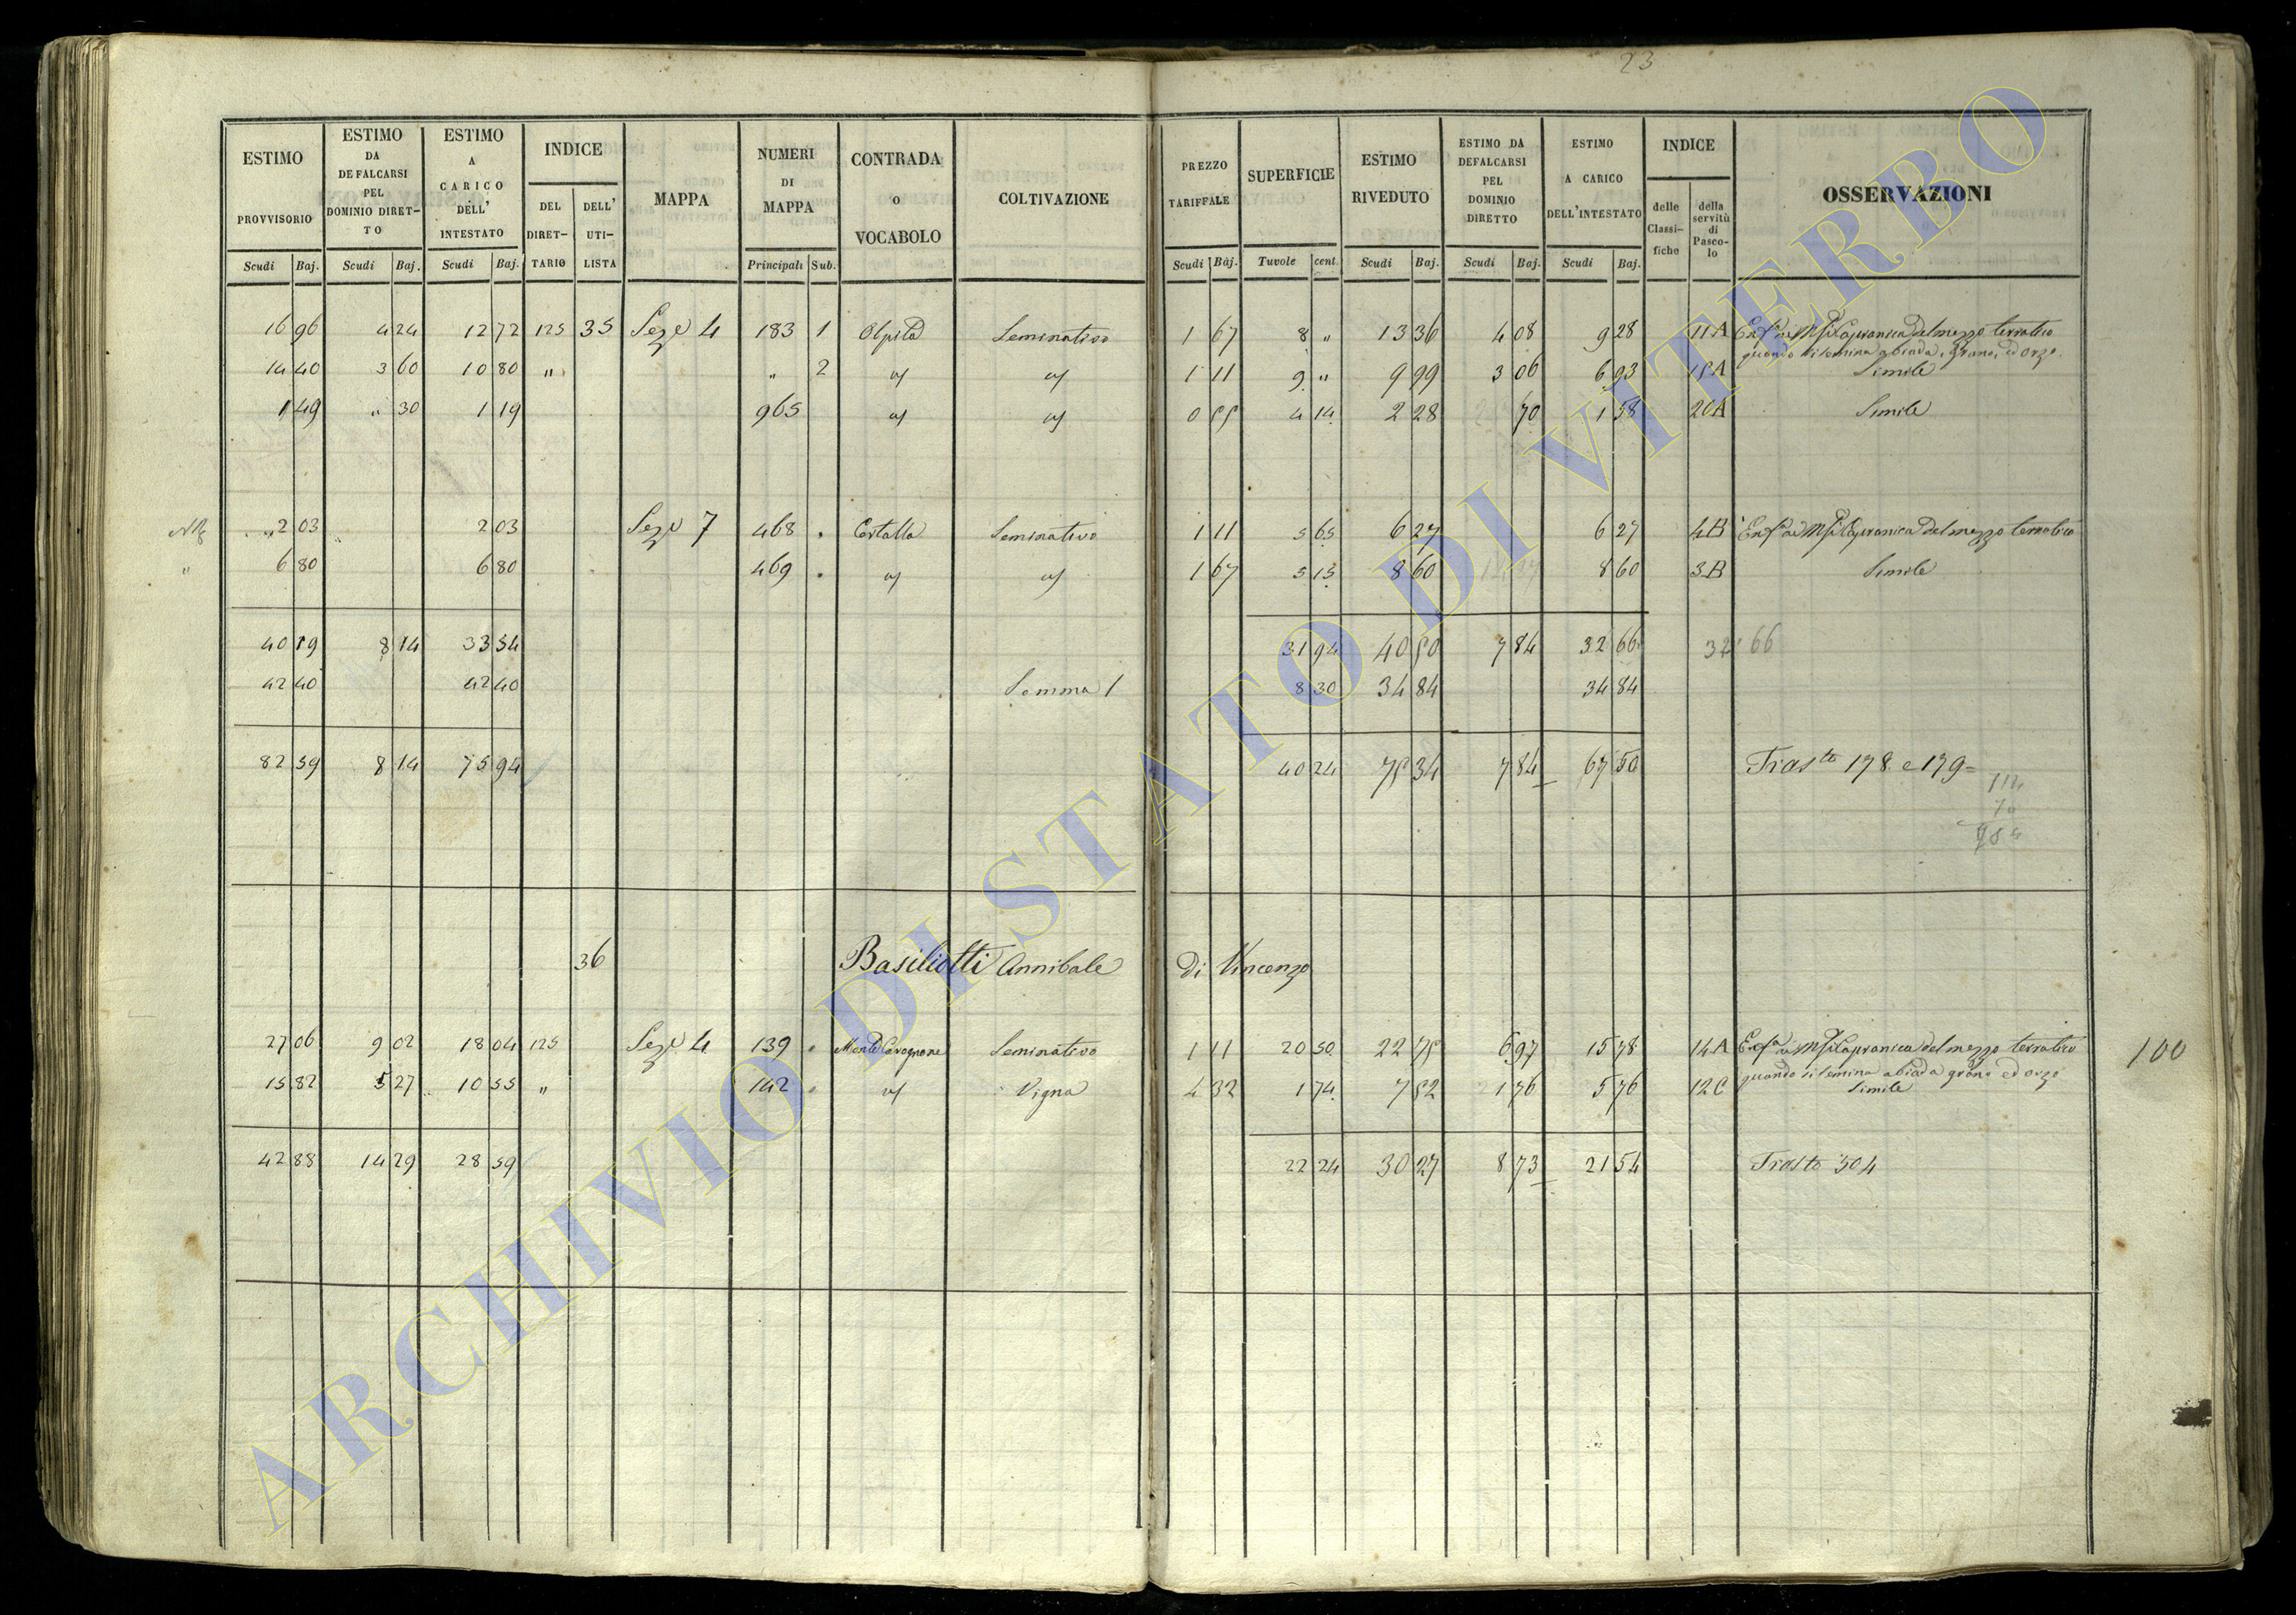 23
ESTIMO PROVVISORIO | ESTIMO DA DEFALCARSI PEL DOMINIO DIRET-TO | ESTIMO A CARICO DELL' INTESTATO | INDICE | MAPPA | NUMERI DI MAPPA | CONTRADA o VOCABOLO | COLTIVAZIONE | PREZZO TARIFFALE | SUPERFICIE | ESTIMO RIVEDUTO | ESTIMO DA DEFALCARSI PEL DOMINIO DIRETTO | ESTIMO A CARICO DELL'INTESTATO | INDICE | OSSERVAZIONI
DEL DIRET-TARIO | DELL' UTI-LISTA | delle Classi-fiche | della servitù di Pasco-lo
Scudi | Baj. | Scudi | Baj. | Scudi | Baj. | Principali | Sub. | Scudi | Baj. | Tavole | cent. | Scudi | Baj. | Scudi | Baj. | Scudi | Baj.
16 96 | 4 24 | 12 72 | 125 | 35 | Seze 4 | 183 | 1 | | Seminativo | 1 67 | 8 „ | 13 36 | 4 08 | 9 28 | 11 A | Capranica del mezzo terratico
quando si semina a biada, grano, ed orzo.
14 40 | 3 60 | 10 80 | „ | | | „ | 2 | | | 1 11 | 9 „ | 9 99 | 3 06 | 6 93 | 15 A | Simile
1 49 | „ 30 | 1 19 | | | | 965 | | | | 0 55 | 4 14 | 2 28 | 70 | 1 58 | 20 A | Simile
„ 2 03 | | 2 03 | | | Seze 7 | 468 | | | Seminativo | 1 11 | 5 65 | 6 27 | | 6 27 | 4 B | Capranica del mezzo terratico
„ 6 80 | | 6 80 | | | | 469 | | | | 1 67 | 5 15 | 8 60 | | 8 60 | 3 B | Simile
40 19 | 8 14 | 33 54 | 31 94 | 40 50 | 7 84 | 32 66 | 32 66
42 40 | | 42 40 | Somma 1 | 8 30 | 34 84 | | 34 84
82 59 | 8 14 | 75 94 | 40 24 | 75 34 | 7 84 | 67 50 | Trasto 178 e 179
36 Basiliotti Annibale di Vincenzo
27 06 | 9 02 | 18 04 | 125 | | Seze 4 | 139 | | Monte Cavagnone | Seminativo | 1 11 | 20 50 | 22 75 | 6 97 | 15 78 | 14 A | Capranica del mezzo terratico | 100
quando si semina a biada grano ed orzo
15 82 | 5 27 | 10 55 | „ | | | 142 | | | Vigna | 4 32 | 1 74 | 7 52 | 1 76 | 5 76 | 12 C | Simile
42 88 | 14 29 | 28 59 | 22 24 | 30 27 | 8 73 | 21 54 | Trasto 504
ARCHIVIO DI STATO DI VITERBO